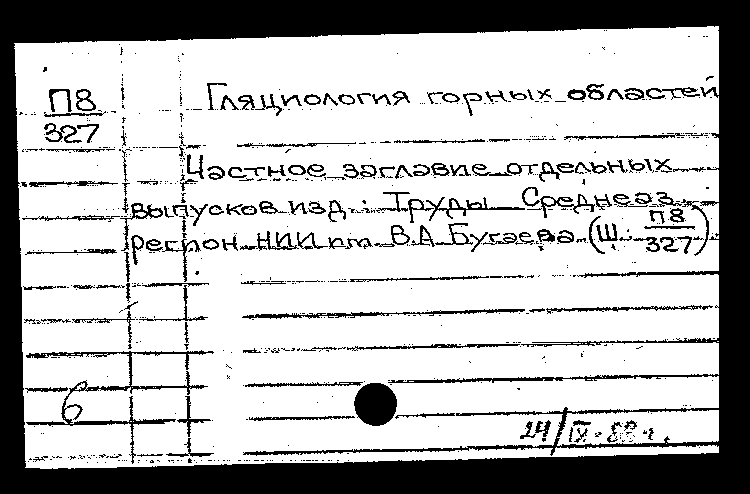 П8
327
Гляциология горных областей
Частное заглавие отдельных
выпусков изд.: Труды Среднеаз.
регион. НИИ им. В.А. Бугаева (Ш: П8/327)
6
24/IX-88 г.